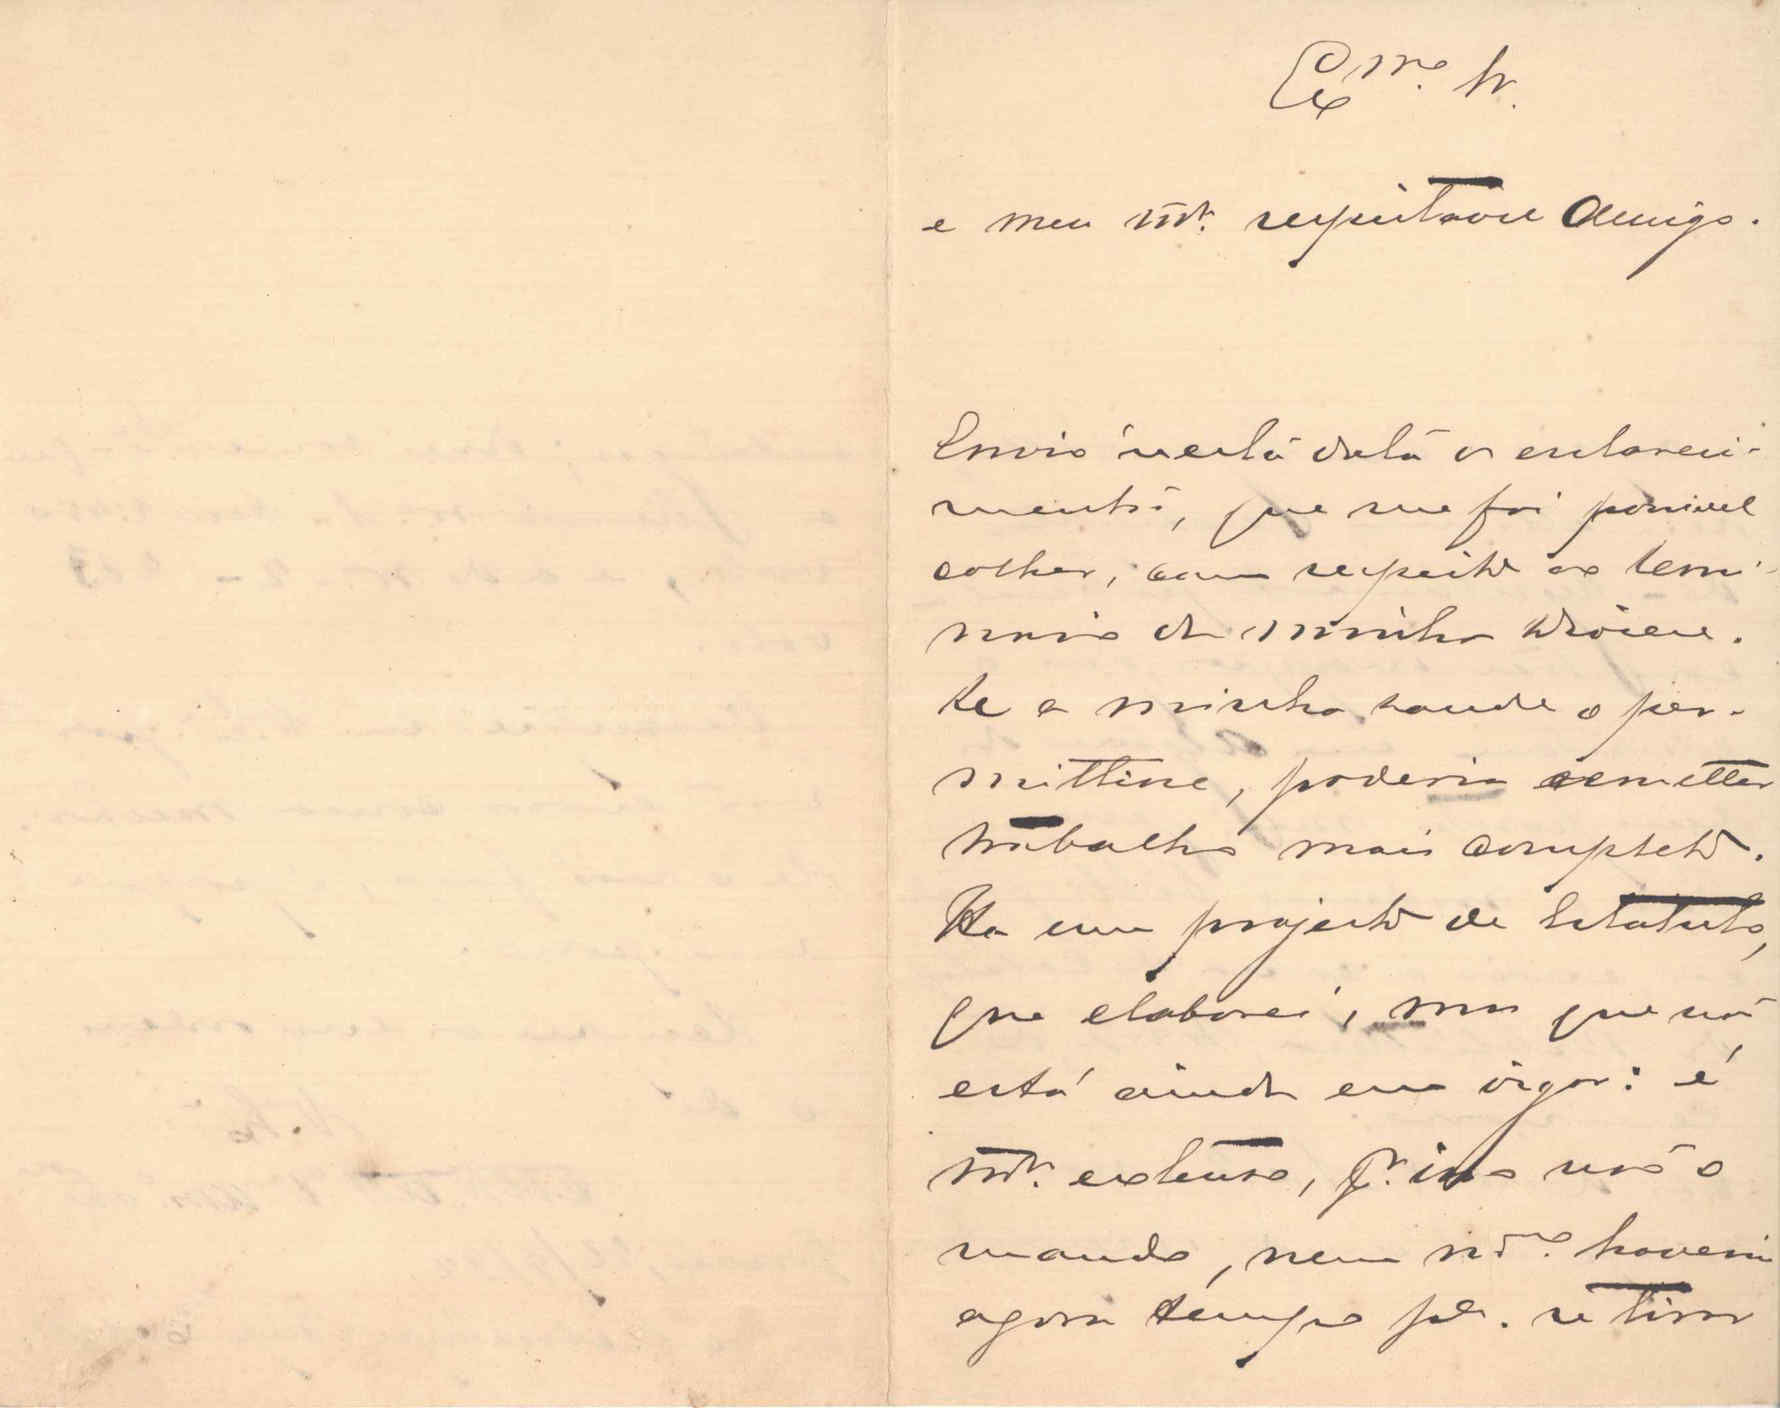 Exmo. Sr.
e meu mto. respeitavel Amigo.
Envio n'esta data os esclareci-
mentos, que me foi possivel
colher, com respeito ao Semi-
nario da minha diocese.
Se a minha saude o per-
mittisse, poderia remetter
trabalho mais completo.
Ha um projecto de Estatuto,
que elaborei, mas que não
está ainda em vigor: é
mto. extenso, pr. isso não o
mando, nem mmo. haveria
agora tempo pa. se tirar